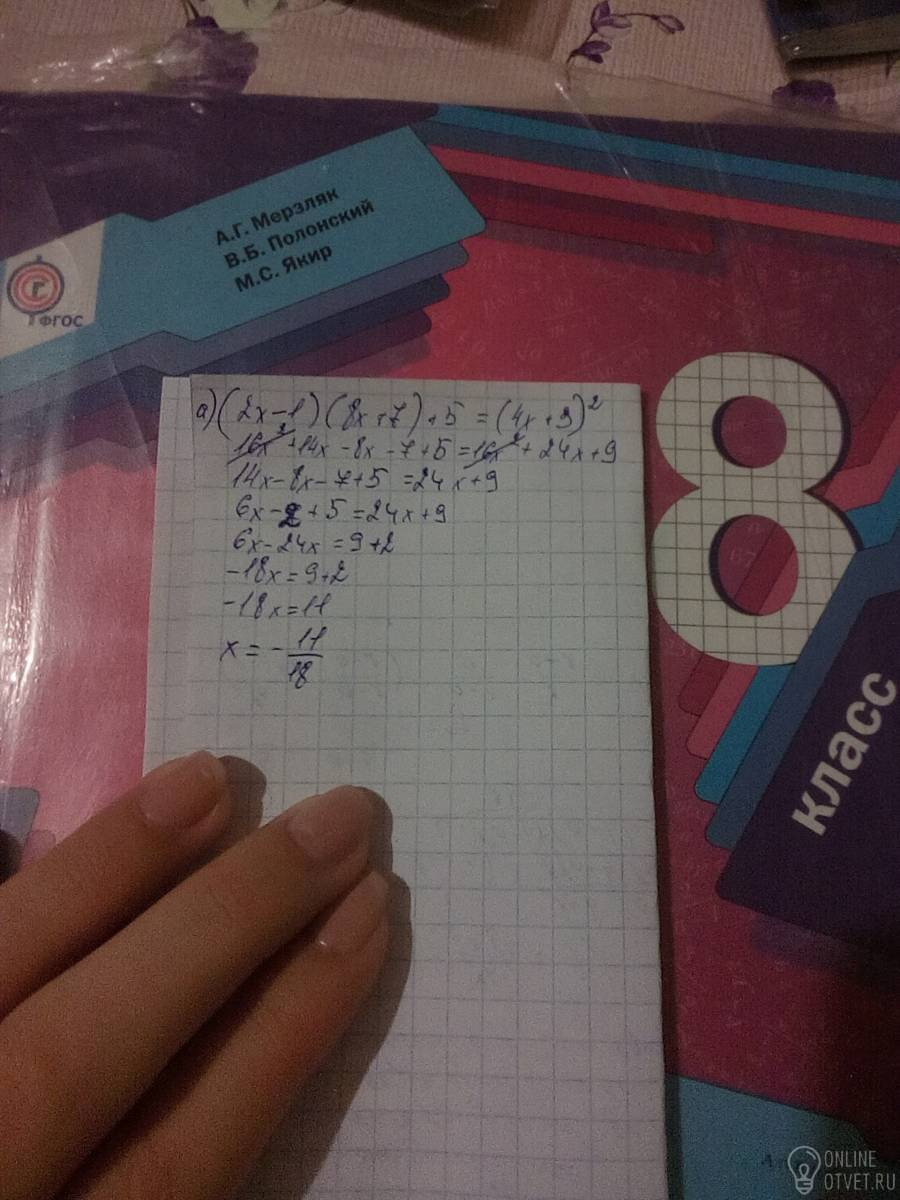 А.Г. Мерзляк
В.Б. Полонский
М.С. Якир
ФГОС
8
класс
а) (2x-1)(8x+7)+5 = (4x+3)²
16x² +14x -8x -7+5 = 16x² + 24x+9
14x-8x-7+5 = 24x+9
6x-2+5 = 24x+9
6x-24x = 9+2
-18x = 9+2
-18x = 11
x = - 11/18
ONLINE
OTVET.RU